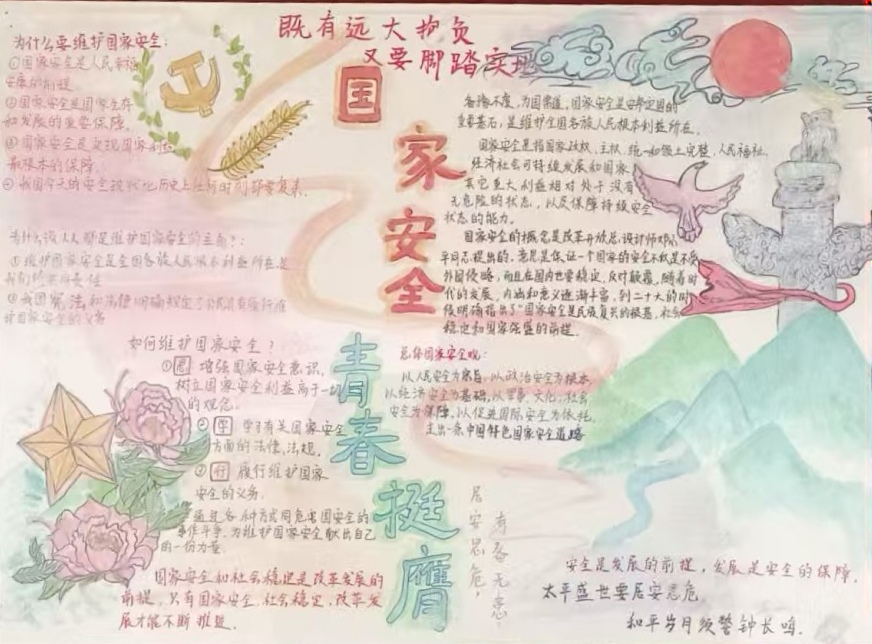 既有远大抱负
又要脚踏实地
国家安全
青春挺膺
为什么要维护国家安全:
①国家安全是人民幸福
安康的前提
②国家安全是国家生存
和发展的重要保障。
③国家安全是实现国家利益
最根本的保障。
④我国今天的安全现状比历史上任何时刻都要复杂.
为什么说人人都是维护国家安全的主角?:
①维护国家安全是全国各族人民根本利益所在是
我们的共同责任
②我国宪法和法律明确规定了公民有履行维
护国家安全的义务
如何维护国家安全?
① 增强国家安全意识,
树立国家安全利益高于一切
的观念.
② 学习有关国家安全
方面的法律,法规.
③行 履行维护国家
安全的义务.
通过各种方式同危害国安全的
作斗争,为维护国家安全献出自己
的一份力量
国家安全和社会稳定是改革发展的
前提,只有国家安全,社会稳定,改革发
展才能不断推进.
为国常道,国家安全是安邦定国的
重要基石,是维护全国各族人民根本利益所在.
国家安全是指国家政权、主权、统一和领土完整、人民福祉、
经济社会可持续发展和国家
其它重大利益相对处于没有
危险的状态,以及保障持续安全
状态的能力。
国家安全的概念是改革开放总设计师邓小
平同志提出的,意思是保证一个国家的安全不仅是不受
外国侵略,而且在国内也要稳定,反对颠覆,随着时
代的发展,内涵和意义逐渐丰富,到二十大的时
候明确指出了"国家安全是民族复兴的根基,社会
稳定和国家强盛的前提.
总体国家安全观:
以人民安全为宗旨,以政治安全为根本,
以经济安全为基础,以军事、文化、社会
安全为保障,以促进国际安全为依托,
走出一条中国特色国家安全道路
居安思危,
有备无患.
安全是发展的前提,发展是安全的保障.
太平盛世要居安思危.
和平岁月须警钟长鸣.